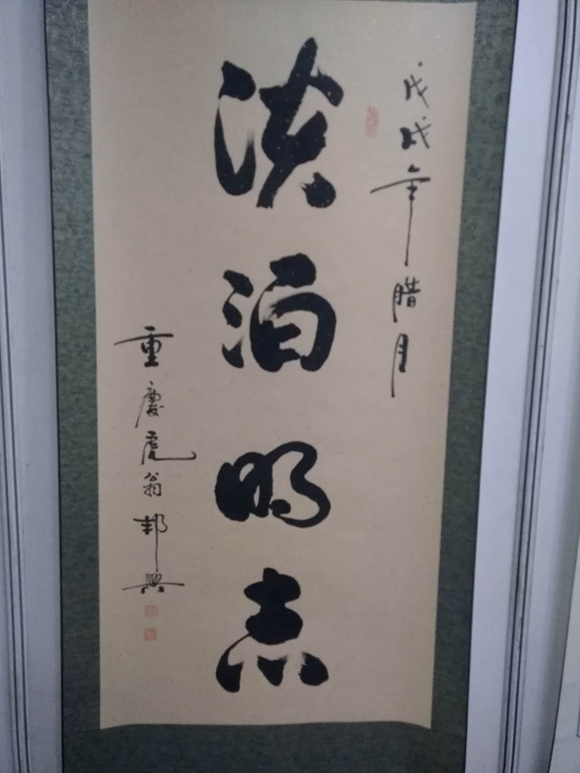 戊戌年腊月
淡泊明志
重慶虎翁邦興